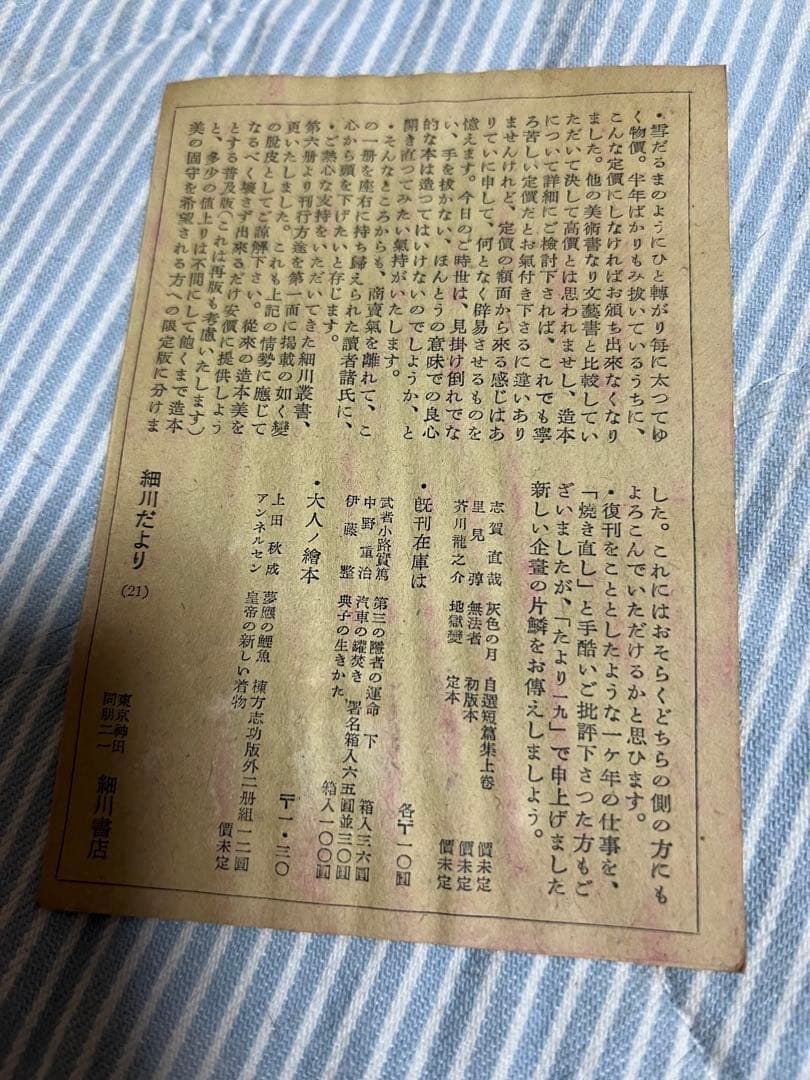 ・雪だるまのようにひと轉がり每に太つてゆ
く物價。半年ばかりもみ拔いているうちに、
こんな定價にしなければお頒ち出來なくなり
ました。他の美術書なり文藝書と比較してい
ただいて決して高價とは思われませし、造本
について詳細にご檢討下されば、これでも寧
ろ苦しい定價だとお氣付き下さるに違いあり
ませんけれど、定價の額面から來る感じはあ
りていに申して、何となく辟易させるものを
憶えます。今日のご時世は、見掛け倒れでな
い、手を拔かない、ほんとうの意味での良心
的な本は造つてはいけないのでしようか、と
開き直つてみたい氣持がいたします。
・そんなところからも、商賣氣を離れて、こ
の一册を座右に持ち歸えられた讀者諸氏に、
心から頭を下げたいと存じます。
・ご熱心な支持をいただいてきた細川叢書、
第六册より刊行方途を第一面に揭載の如く變
更いたしました。これも上記の情勢に應じて
の脫皮としてご諒解下さい。從來の造本美を
なるべく壞さず出來るだけ安價に提供しよう
とする普及版(これは再版も考慮いたします)
と、多少の値上りは不問にして飽くまで造本
美の固守を希望される方への限定版に分けま
した。これにはおそらくどちらの側の方にも
よろこんでいただけるかと思ひます。
・復刊をこととしたような一ケ年の仕事を、
「燒き直し」と手酷いご批評下さつた方もご
ざいましたが、「たより一九」で申上げました
新しい企畫の片鱗をお傳えしましよう。
志賀直哉 灰色の月 自選短篇集上卷 價未定
里見弴 無法者 初版本 價未定
芥川龍之介 地獄變 定本 價未定
・旣刊在庫は 各〒一〇圓
武者小路實篤 第三の隱者の運命 下 箱入三六圓
中野重治 汽車の罐焚き 署名箱入六五圓並三〇圓
伊藤整 典子の生きかた 箱入一〇〇圓
・大人ノ繪本 〒一・三〇
上田秋成 夢應の鯉魚 棟方志功版外二册組一二圓
アンネルセン 皇帝の新しい着物 價未定
細川だより (21)
東京神田
同朋二一 細川書店